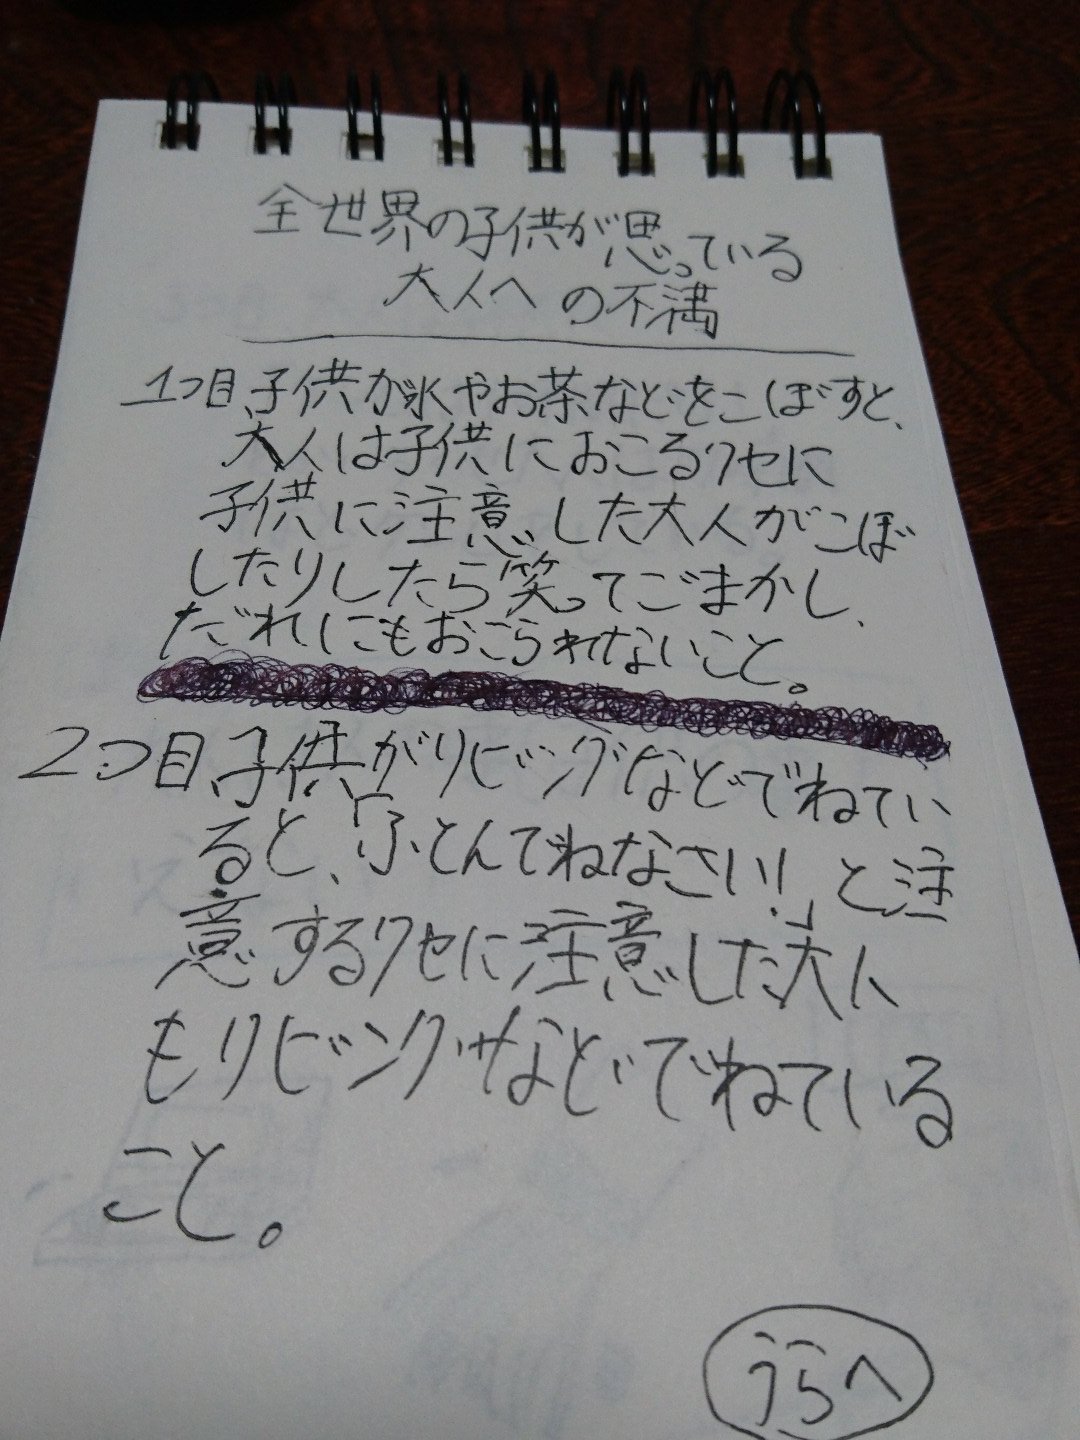 全世界の子供が思っている
大人への不満
1つ目子供が水やお茶などをこぼすと、
大人は子供におこるクセに
子供に注意した大人がこぼ
したりしたら笑ってごまかし、
だれにもおこられないこと。
2つ目子供がリビングなどでねてい
ると、「ふとんでねなさい!」と注
意するクセに注意した大人
もリビングなどでねている
こと。
うらへ